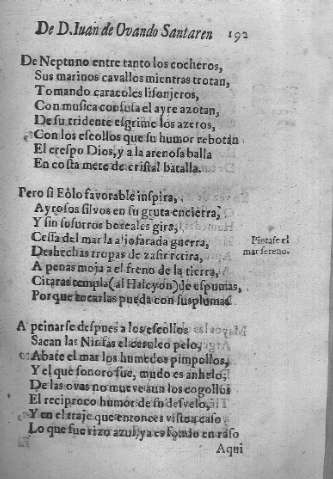 De D. Iuan de Ovando Santaren 192
De Neptuno entre tanto los cocheros,
Sus marinos cavallos mientras trotan,
Tomando caracoles lisonjeros,
Con musica confusa el ayre azotan,
De su tridente esgrime los azeros,
Con los escollos que su humor rebotan
El crespo Dios, y a la arenosa balla
En costa mete de cristal batalla.
Pero si Eolo favorable inspira,
Ayrosos silvos en su gruta encierra,
Y sin susurros boreales gira,
Cessa del mar la aljofarada guerra,
Deshechas tropas de zafir retira,
A penas moja el freno de la tierra,
Citaras templa (al Halcyon) de espumas,
Porque tocarlas pueda con sus plumas
Pintase el
mar sereno.
A peinarse despues a los escollos
Sacan las Ninfas el ceruleo pelo,
Abate el mar los humedos pimpollos,
Y el que sonoro fue, mudo es anhelo,
De las ovas no mueve aun los cogollos
El reciproco humor de su desvelo,
Y en el traje que entonces vistio caso
Lo que fue rizo azul, ya es fondo en raso
Aqui